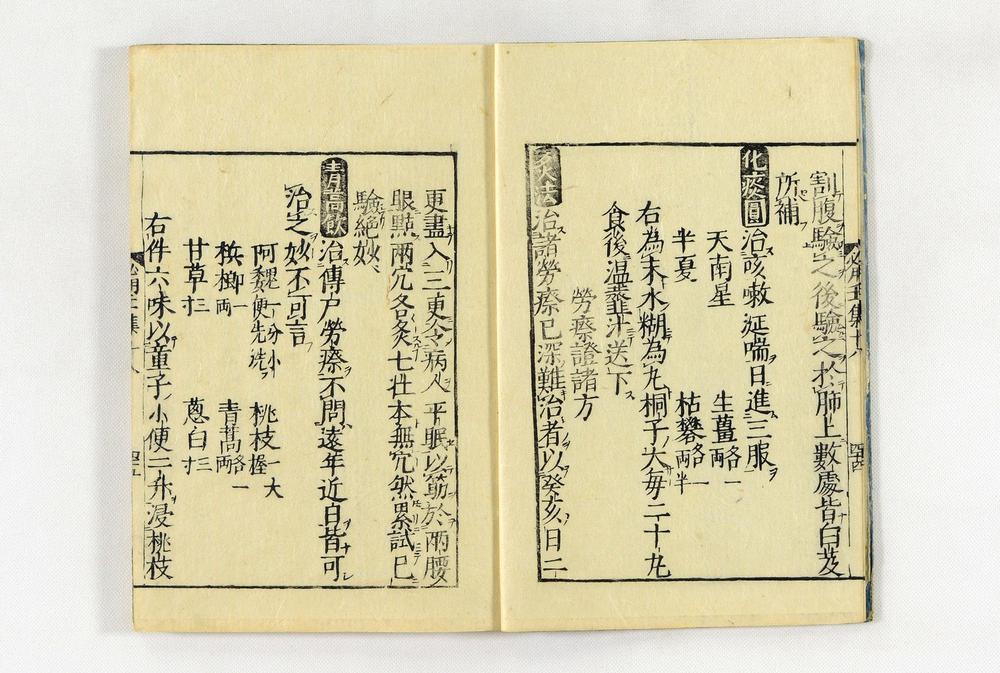 割腹驗之後驗之於肺上數處皆白芨
所補
化痰圓 治咳嗽涎喘日進三服
天南星 生薑各一兩
半夏 枯礬各一兩半
右為末水糊為丸桐子大毎二十丸
食後温虀汁送下
勞瘵證諸方
灸法 治諸勞瘵已深難治者以癸亥日二
更盡入三更令病人平眠以筯於兩腰
眼點兩穴各灸七壮本無穴然累試已
驗絶妙〻
青蒿飲 治傳尸勞瘵不問遠年近日皆可
治之妙不可言
阿魏一分小便先洗 桃枝一大握
檳榔一兩 青蒿各一兩
甘草三寸 葱白三寸
右件六味以童子小便二升浸桃枝